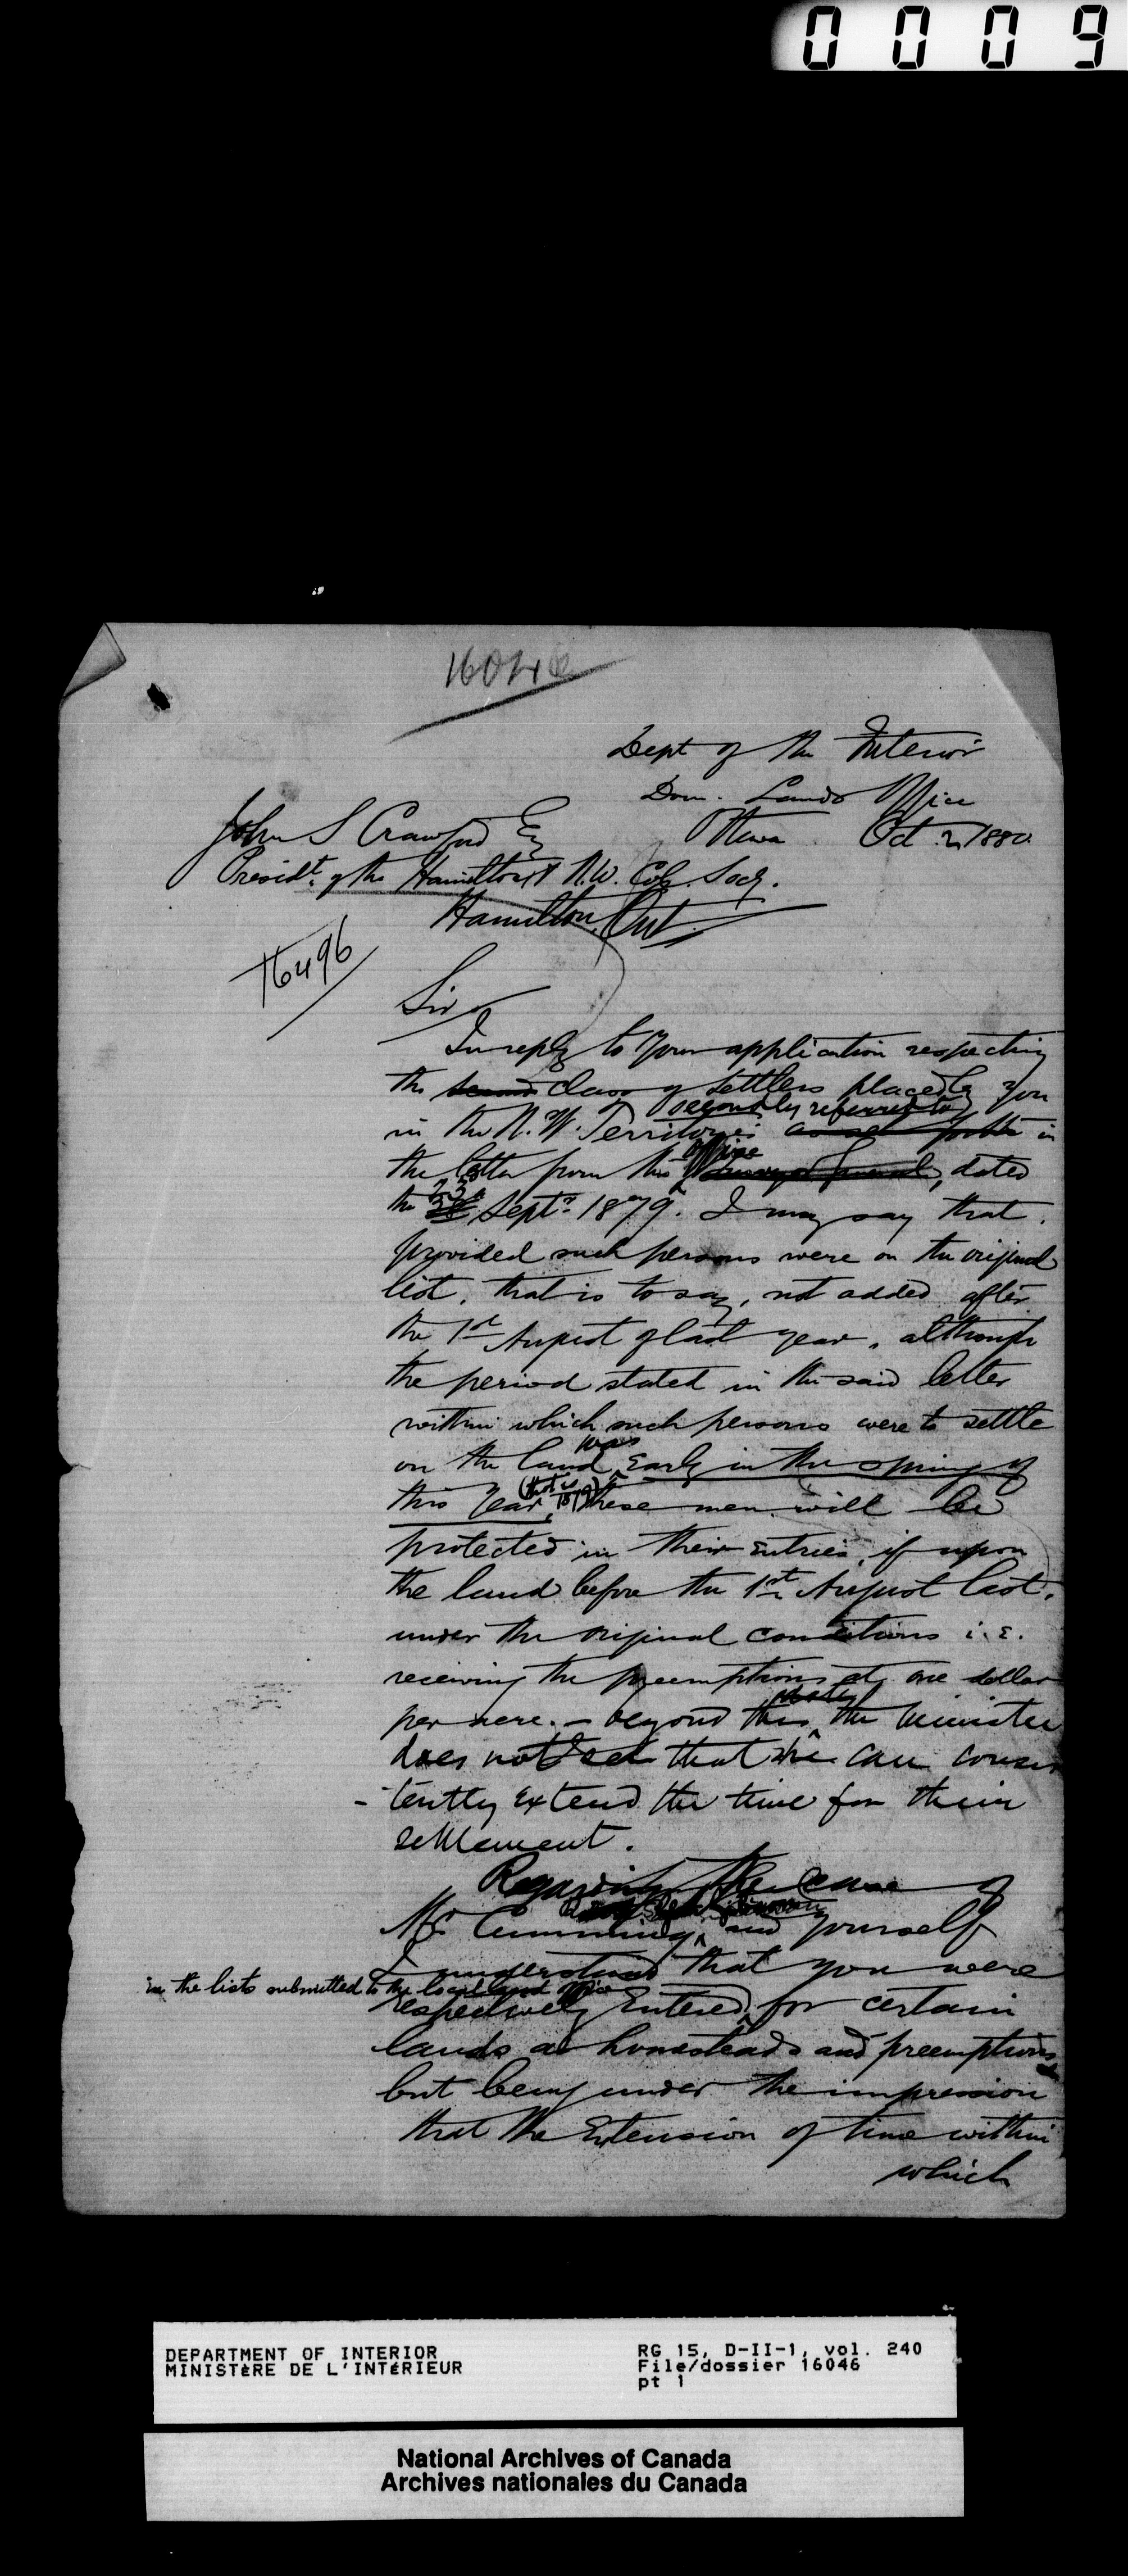 0009
16046
Dept of the Interior
Dom. Lands Office
John S Crawford Esq
Ottawa Oct 2, 1880.
Presidt. of the Hamilton & N.W. Col. Socy.
Hamilton, Ont.
16496
Sir
In reply to your application respecting
the second class of settlers placed by you
secondly referred to
in the N.W. Territories as set forth in
office
the letter from the Surveyor General, dated
23d
the Septr. 1879. I may say that
provided such persons were on the original
list, that is to say, not added after
the 1st August of last year, although
the period stated in the said letter
within which such persons were to settle
was
on the land Early in the spring of
(that is 1879)
this Year, these men will be
protected in their entries, if upon
the land before the 1st August last,
under the original conditions i.e.
receiving the preemptions at one dollar
per acre. - beyond this the Minister
does not see that he can consis
-tently extend the time for their
settlement.
Regarding the case of
Mr Cumming and yourself
I understand that you were
in the lists submitted to the local land office
respectively Entered for certain
lands as homesteads and preemptions
but being under the impression
that the Extension of time within
which
DEPARTMENT OF INTERIOR
MINISTÈRE DE L'INTÉRIEUR
RG 15, D-II-1, vol. 240
File/dossier 16046
pt 1
National Archives of Canada
Archives nationales du Canada